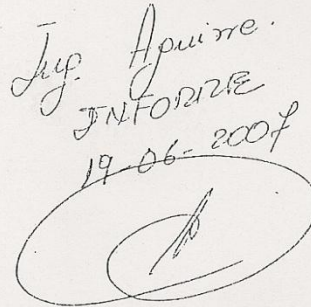 Ing. Aguirre.
INFORME
19-06-2007